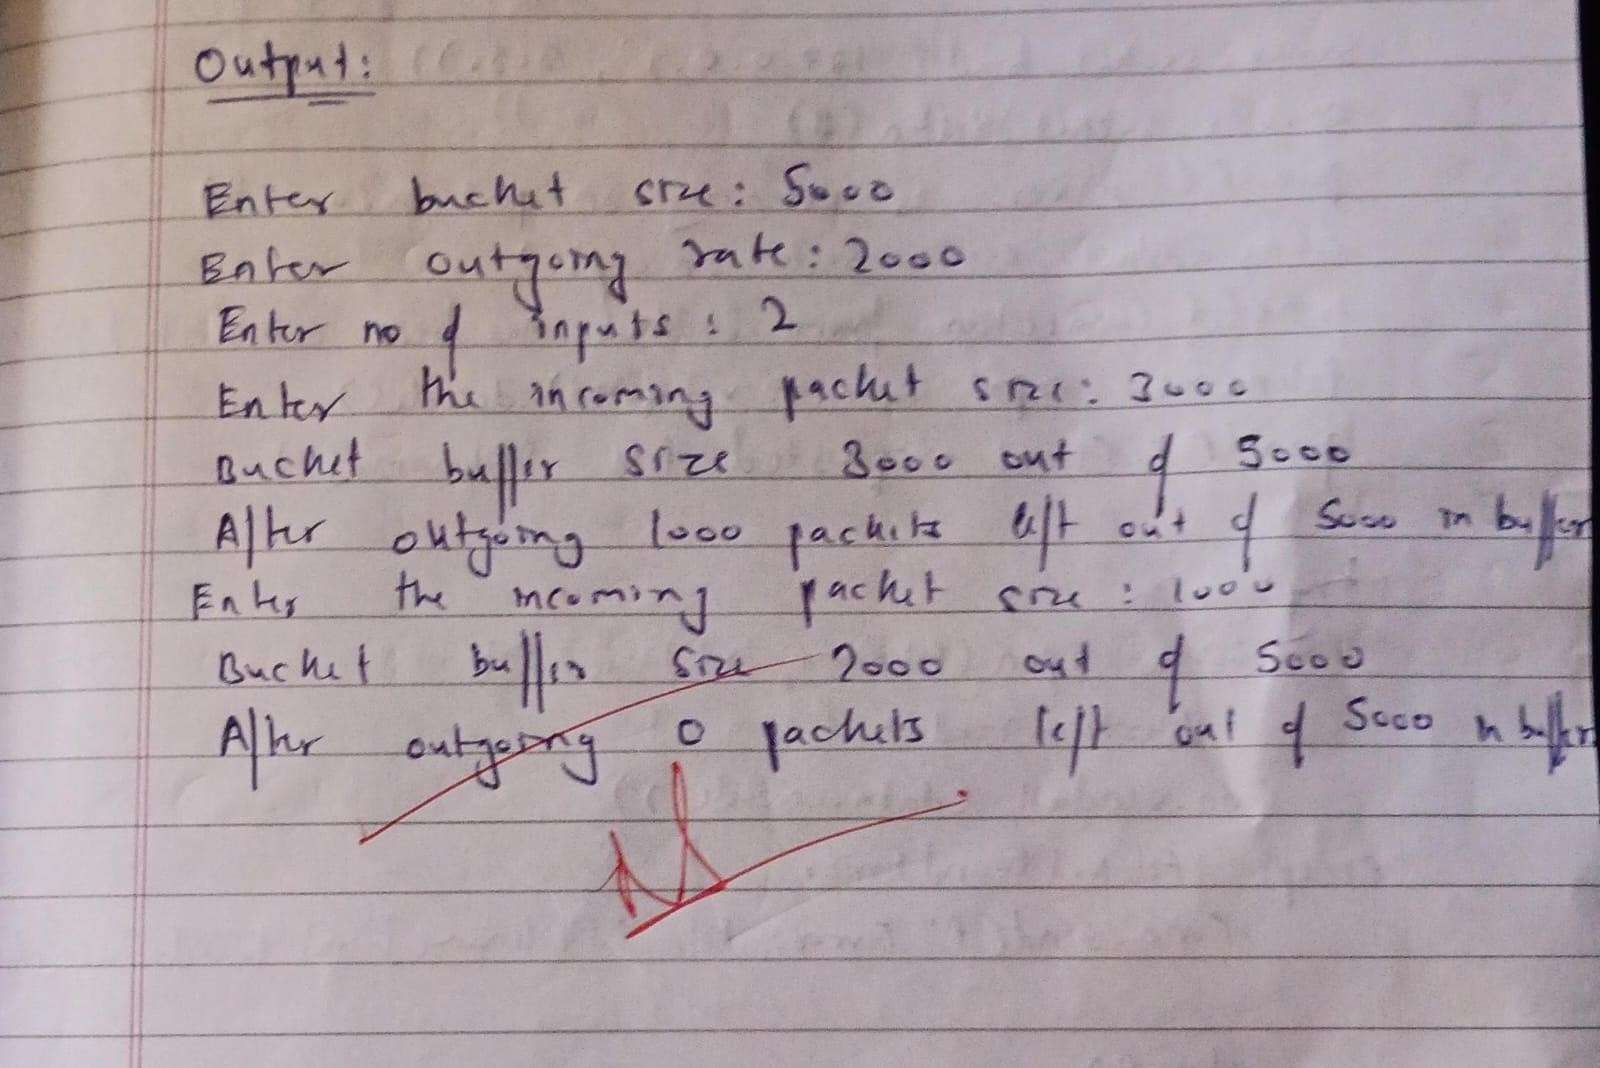 Output:
Enter bucket size: 5000
Enter outgoing rate: 2000
Enter no of inputs: 2
Enter the incoming packet size: 3000
Bucket buffer size 3000 out of 5000
After outgoing 1000 packets left out of 5000 in buffer
Enter the incoming packet size: 1000
Bucket buffer size 2000 out of 5000
After outgoing 0 packets left out of 5000 in buffer